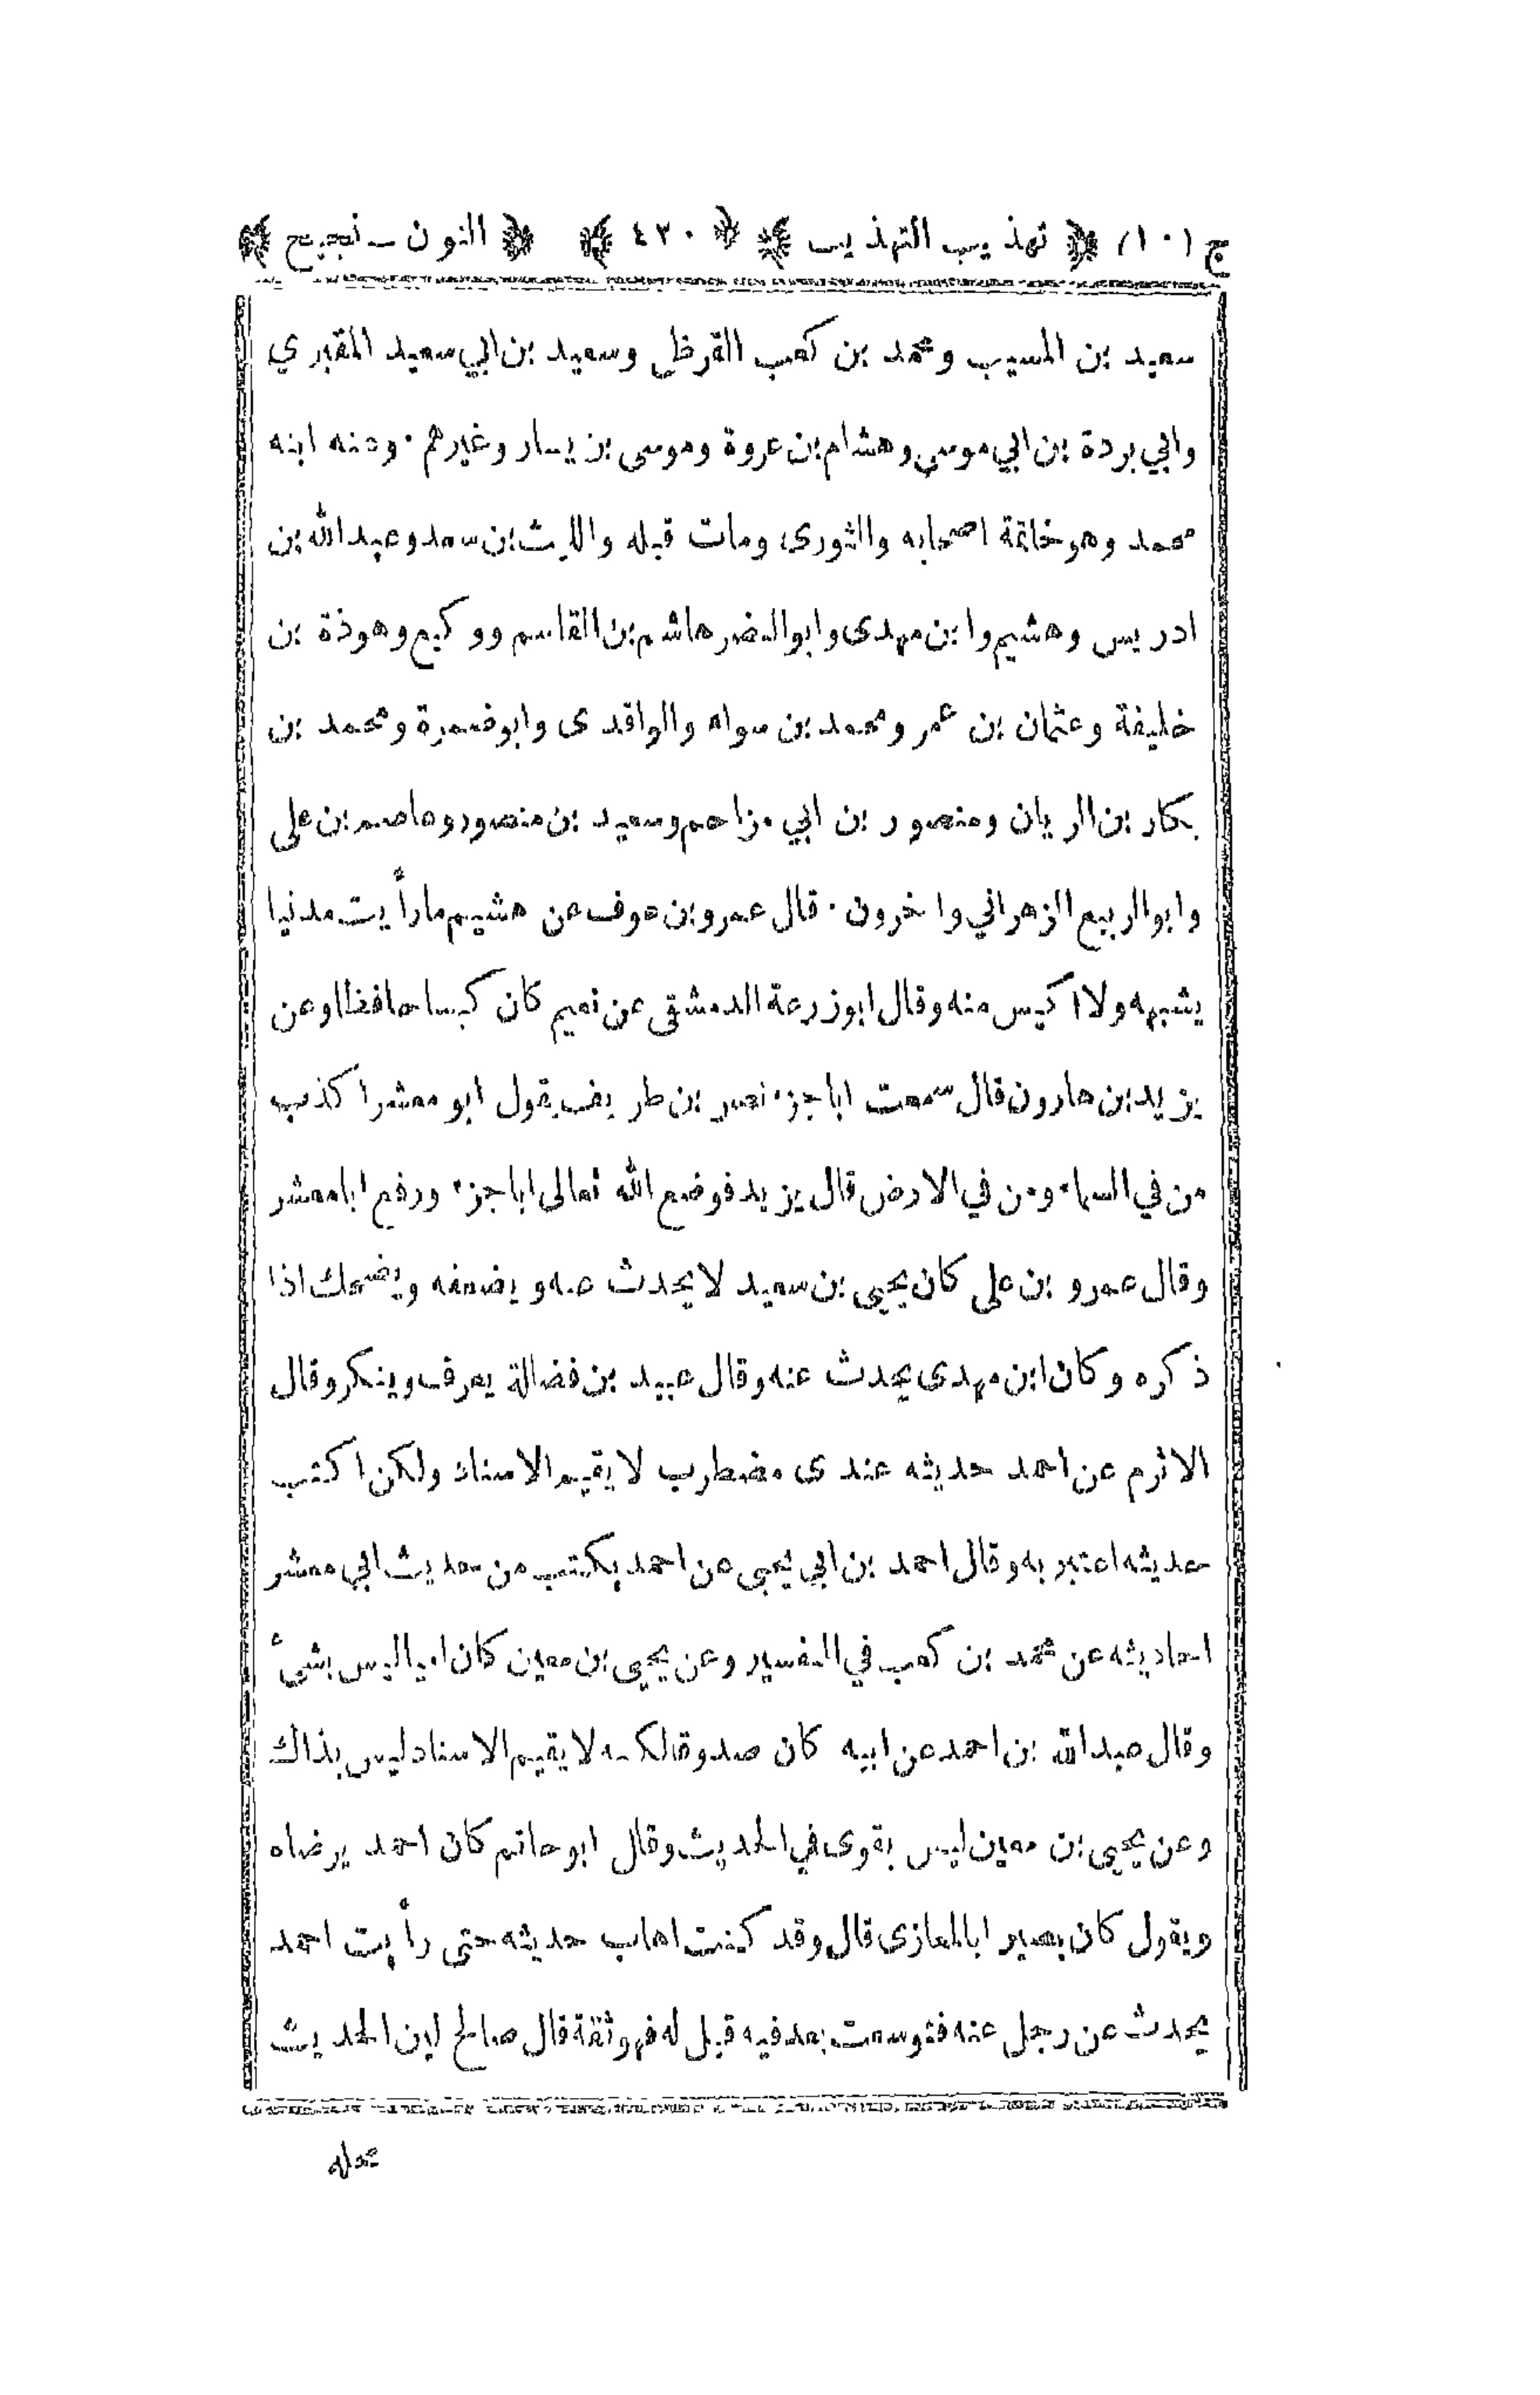 ج (١٠) ﴿ تهذيب التهذيب ﴾ ﴿ ٤٢٠ ﴾ ﴿ النون ـ نجيح ﴾
سعيد بن المسيب ومحمد بن كعب القرظي وسعيد بن ابي سعيد المقبري
وابي بردة بن ابي موسى وهشام بن عروة وموسى بن يسار وغيرهم ٠ وعنه ابنه
محمد وهو خاتمة اصحابه والثورى ومات قبله والليث بن سعد وعبد الله بن
ادريس وهشيم وابن مهدى وابو النضر هاشم بن القاسم ووكيع وهوذة بن
خليفة وعثمان بن عمر ومحمد بن سواء والواقدى وابو ضمرة ومحمد بن
بكار بن الريان ومنصور بن ابي مزاحم وسعيد بن منصور وعاصم بن على
وابو الربيع الزهراني واخرون ٠ قال عمرو بن عوف عن هشيم ما رأيت مدنيا
يشبهه ولا اكيس منه وقال ابو زرعة الدمشقى عن نعيم كان كيسا حافظا وعن
يزيد بن هارون قال سمعت ابا جزء نصر بن طريف يقول ابو معشر اكذب
من في السماء ومن في الارض قال يزيد فوضع الله تعالى ابا جزء ورفع ابا معشر
وقال عمرو بن على كان يحيى بن سعيد لا يحدث عنه ويضعفه ويضحك اذا
ذكره وكان ابن مهدى يحدث عنه وقال عبيد بن فضالة يعرف وينكر وقال
الاثرم عن احمد حديثه عندى مضطرب لا يقيم الاسناد ولكن اكتب
حديثه اعتبر به وقال احمد بن ابي يحيى عن احمد يكتب من حديث ابي معشر
احاديثه عن محمد بن كعب في التفسير وعن يحيى بن معين كان اميا ليس بشئ
وقال عبد الله بن احمد عن ابيه كان صدوقا لكنه لا يقيم الاسناد ليس بذاك
وعن يحيى بن معين ليس بقوى في الحديث وقال ابو حاتم كان احمد يرضاه
ويقول كان بصيرا بالمغازى قال وقد كنت اهاب حديثه حتى رأيت احمد
يحدث عن رجل عنه فتوسعت بعد فيه قيل له فهو ثقة قال صالح لين الحديث
محله